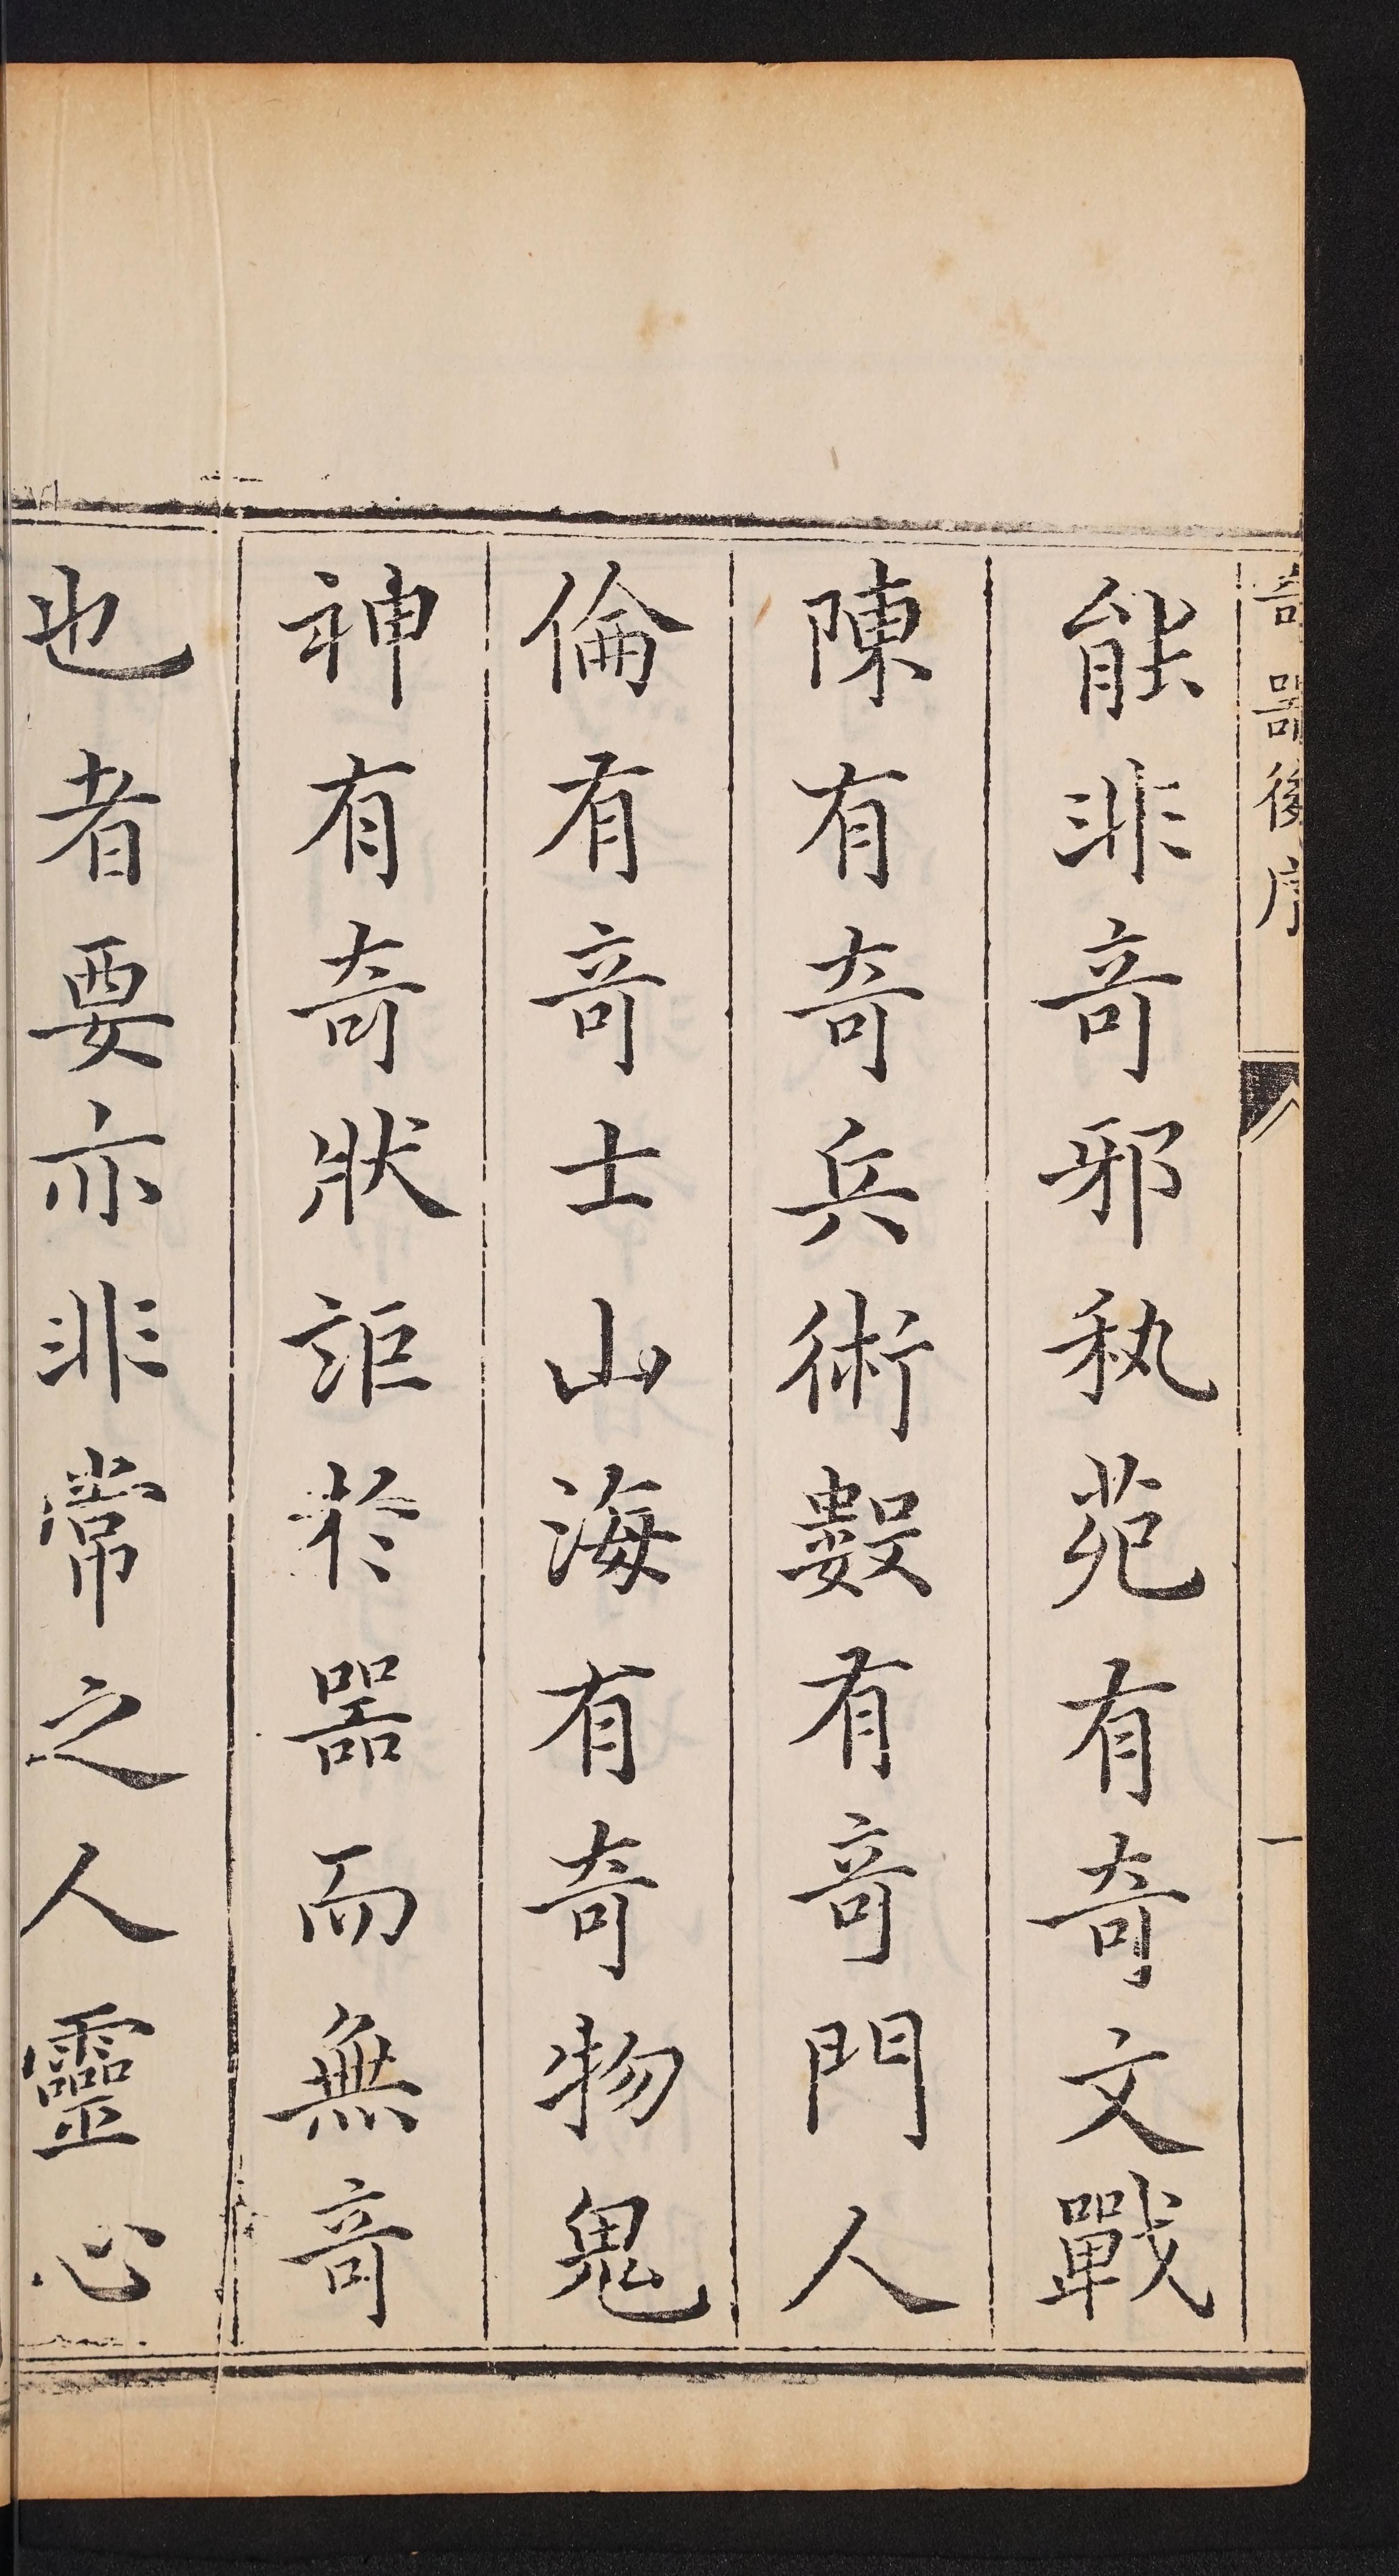 奇器後序
一
能非竒邪秇苑有奇文戰
陳有奇兵術數有竒門人
倫有竒士山海有奇物鬼
神有奇狀詎於器而無竒
也者要亦非常之人靈心